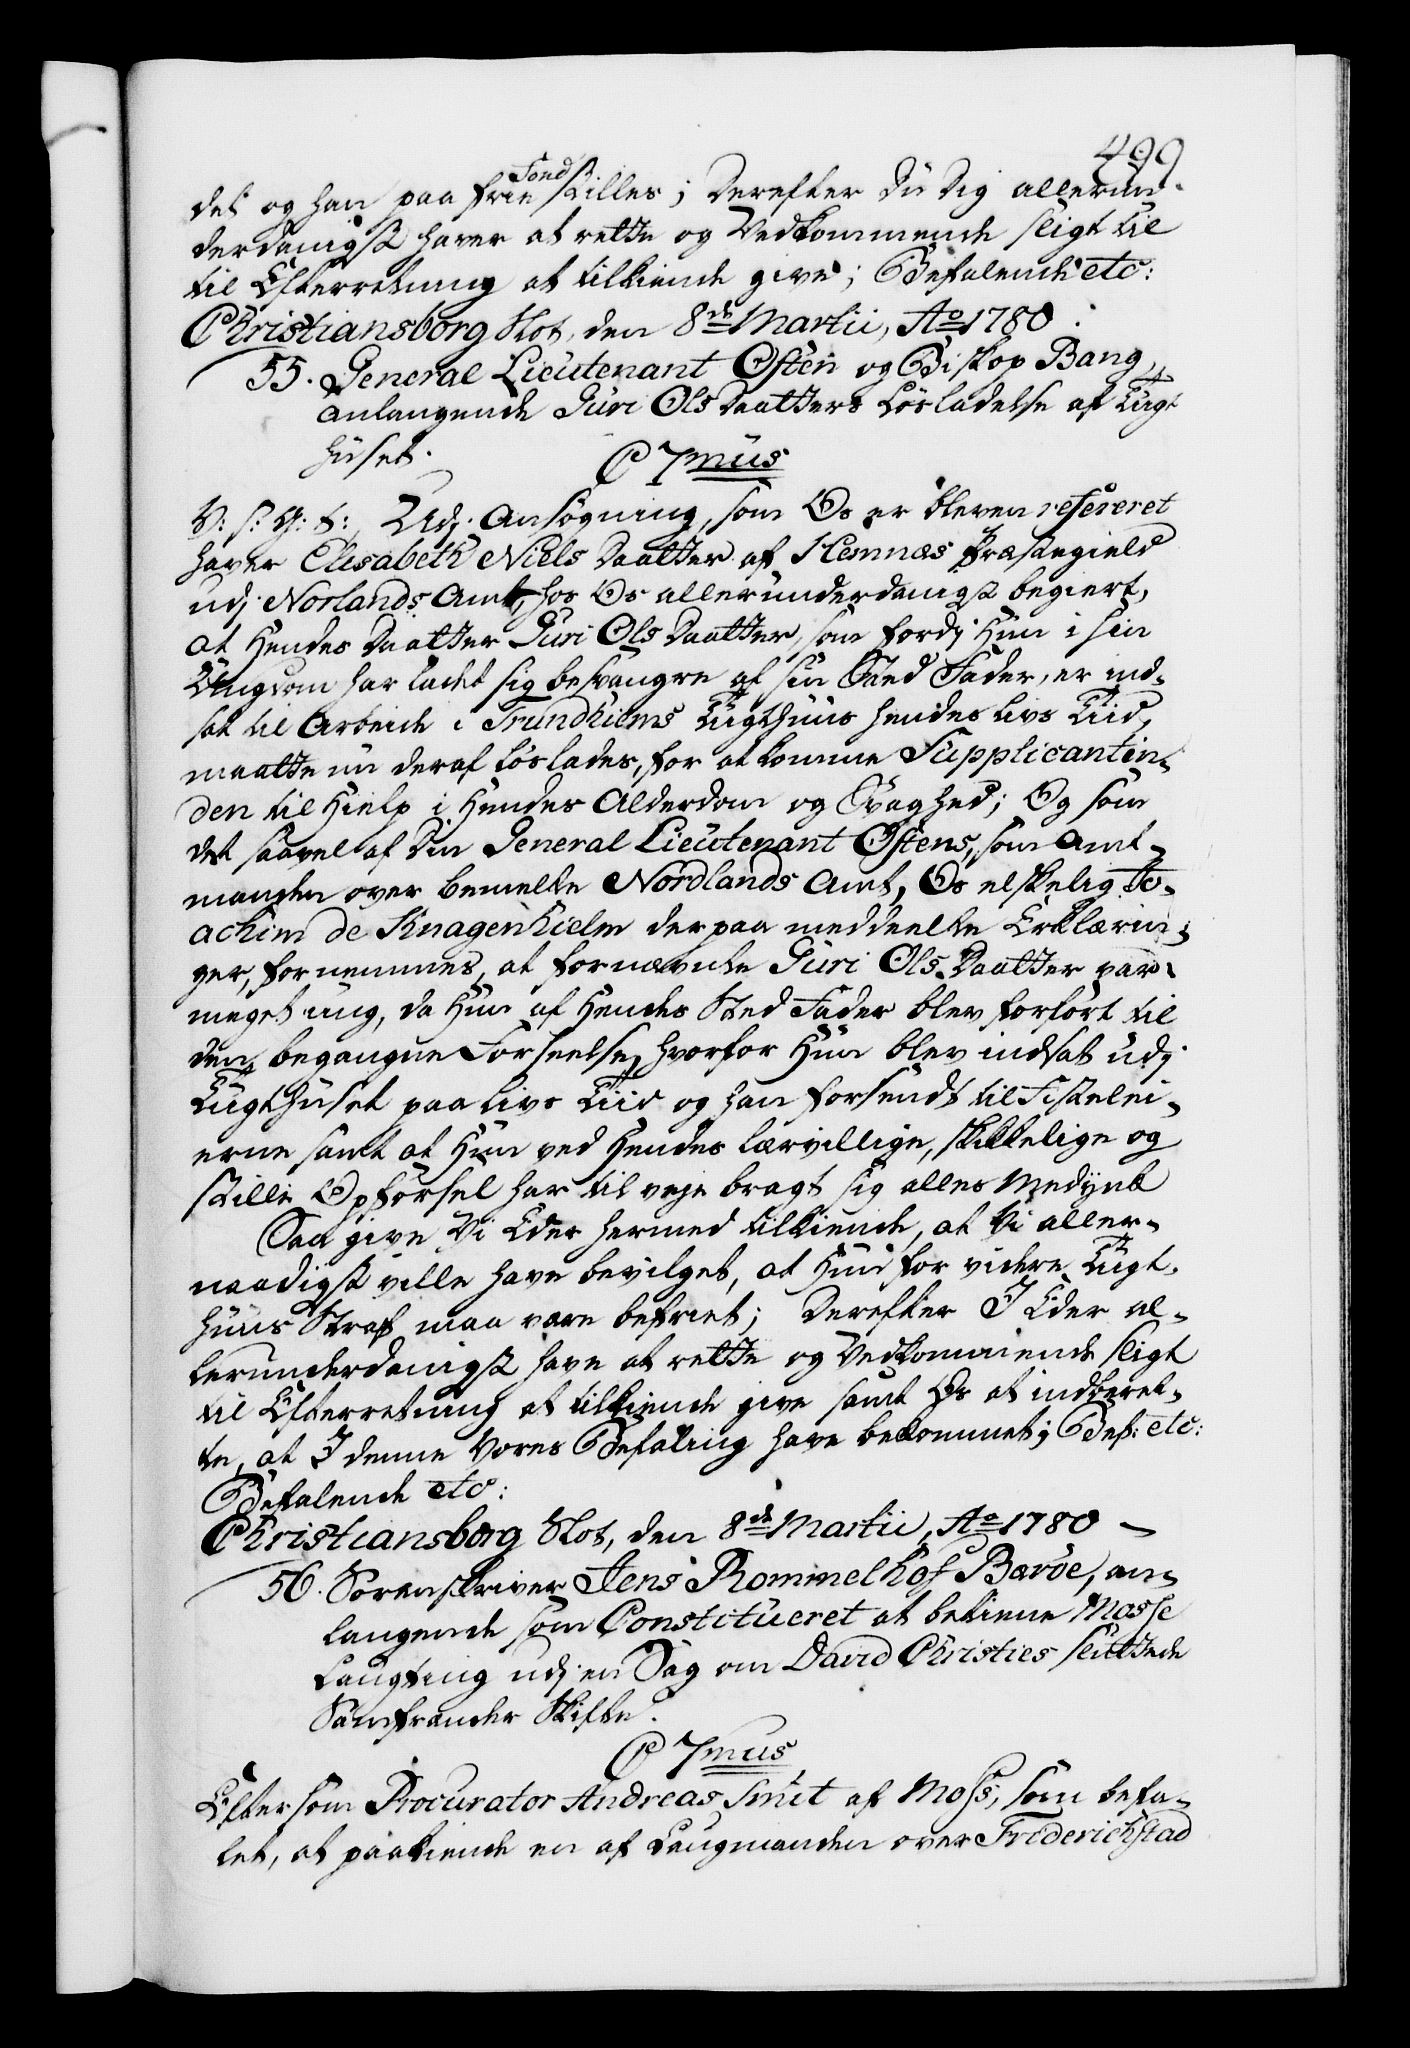 499
det og han paa frie Fond stilles; Derefter Du Dig allerun-
derdanigst haver at rette og Vedkommende sligt til
til Efterretning at tilkiende give; Befalende etc:
Christiansborg Slot, den 8de Martii, Ao 1780.
55. General Lieutenant Osten og Biskop Bang,
anlangende Guri Ols Daatters Løsladelse af Tugt
huset.
C 7mus
V: s: G: t:, Udj Ansøgning, som Os er bleven refereret
haver Elisabeth Niels Daatter af Hemnæs Præstegield
udj Norlands Amt, hos Os allerunderdanigst begiert,
at Hendes Daatter Guri Ols Daatter, som fordj Hun i sin
Ungdom har ladet sig besvangre af sin Sted Fader, er ind-
sat til Arbeide i Trundhiems Tugthuus hendes Livs Tiid,
maatte nu deraf løslades, for at komme Supplicantin-
den til Hielp i Hendes Alderdom og Svaghed; Og som
det saavel af Din General Lieutenant Ostens, som Amt-
manden over bemelte Nordlands Amt, Os elskelig Jo-
achim de Knagenhielm derpaa meddeelte Erklærin-
ger, fornemmes, at fornævnte Guri Ols Daatter var
meget ung, da Hun af Hendes Sted Fader blev forført til
den begangne Forseelse, hvorfor Hun blev indsat udj
Tugthuset paa Livs Tiid og han forsendt til Fiskelei-
erne samt at Hun ved Hendes lærvillige, skikkelige og
stille Opførsel har til veje bragt sig alles Medynk
Saa give Vi Eder hermed tilkiende, at Vi aller-
naadigst ville have bevilget, at Hun for videre Tugt-
huus Straf maa være befriet; Derefter I Eder al-
lerunderdanigst have at rette og Vedkommende sligt
til Efterretning at tilkiende give samt Os at indberet-
te, at I denne Vores Befaling have bekommet; Bef: etc:
Befalende etc:
Christiansborg Slot, den 8de Martii, Ao 1780 —
56. Sorenskriver Jens Rommelhof Barøe, an-
langende som Constitueret at betiene Mosse
Laugting udj en Sag om David Christies sluttede
Samfrænder Skifte.
C 7mus
Eftersom Procurator Andreas Smit af Moss, som befa-
let, at paakiende en af Laugmanden over Friderichstad